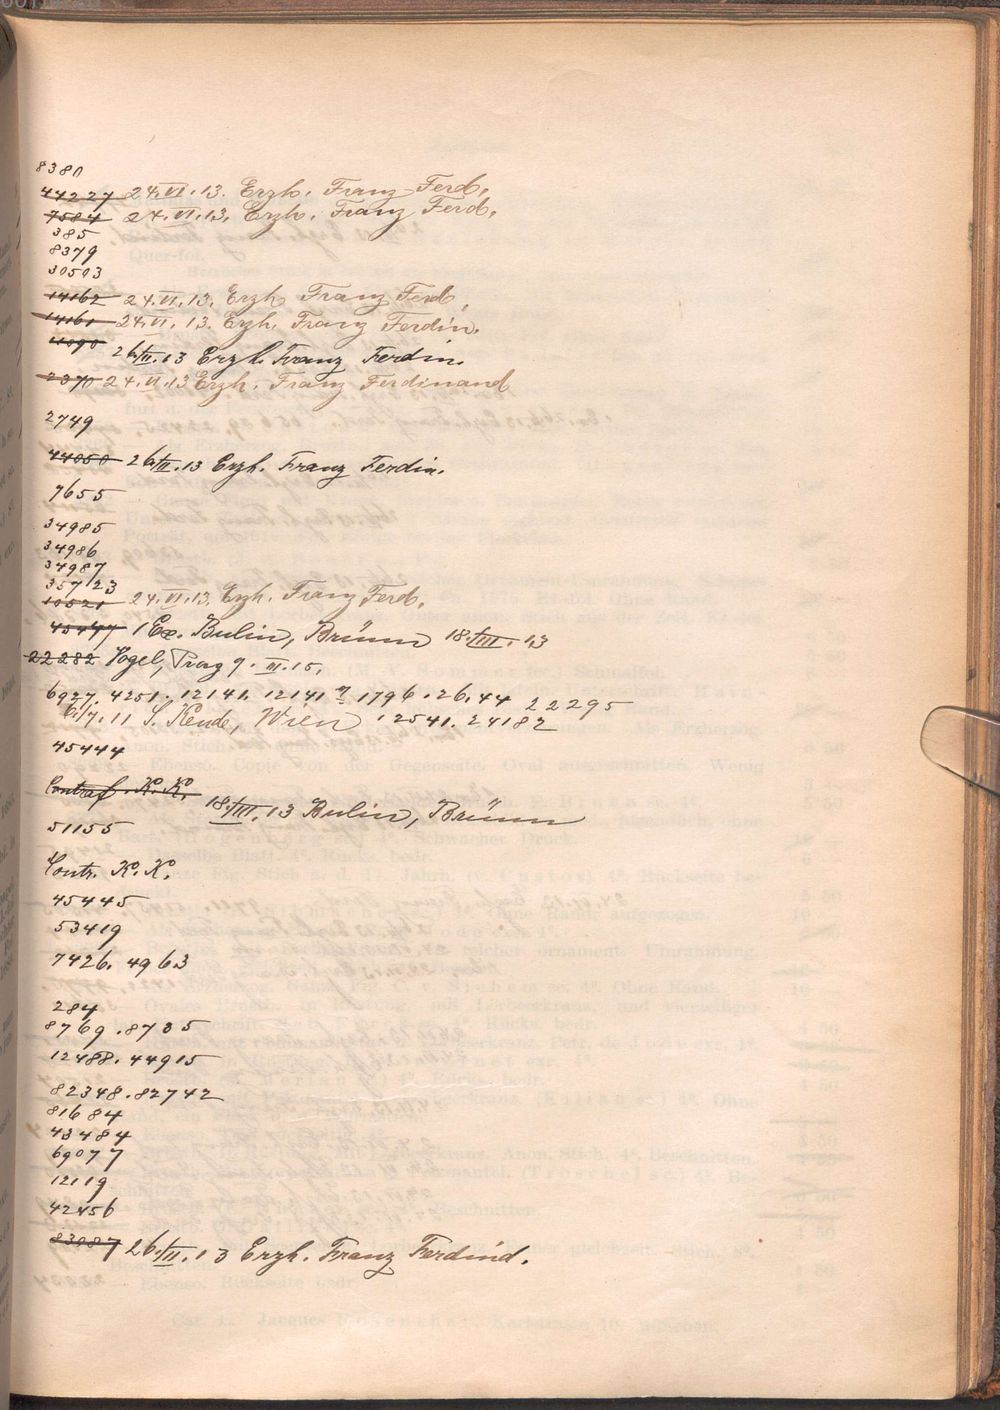 8380
44227 24.VI.13. Erzh. Franz Ferd.
7584 24.VI.13. Erzh. Franz Ferd.
385
8379
30503
14162 24.VI.13. Erzh. Franz Ferd.
14161 24.VI.13. Erzh. Franz Ferdin.
11090 26/II.13 Erzh. Franz Ferdin.
2370 24.VI.13 Erzh. Franz Ferdinand
2749
44050 26/II.13 Erzh. Franz Ferdin.
7655
34985
34986
34987
35723
10521 24.VI.13. Erzh. Franz Ferd.
45447 1 Ex. Bulin, Brünn 18./III.13
22282 Vogel, Prag 9.III.15.
6927. 4251. 12141. 12141 1796. 26.44 22295
6./7.11 S. Kende, Wien 12541. 24182
45444
Contraf. K. K. 18./III.13 Bulin, Brünn
51155
Contr. K. K.
45445
53419
7426. 4963
284
8769. 8735
12488. 44915
82348. 82742
81684
43484
69077
12119
42456
83087 26./II.13 Erzh. Franz Ferdind.